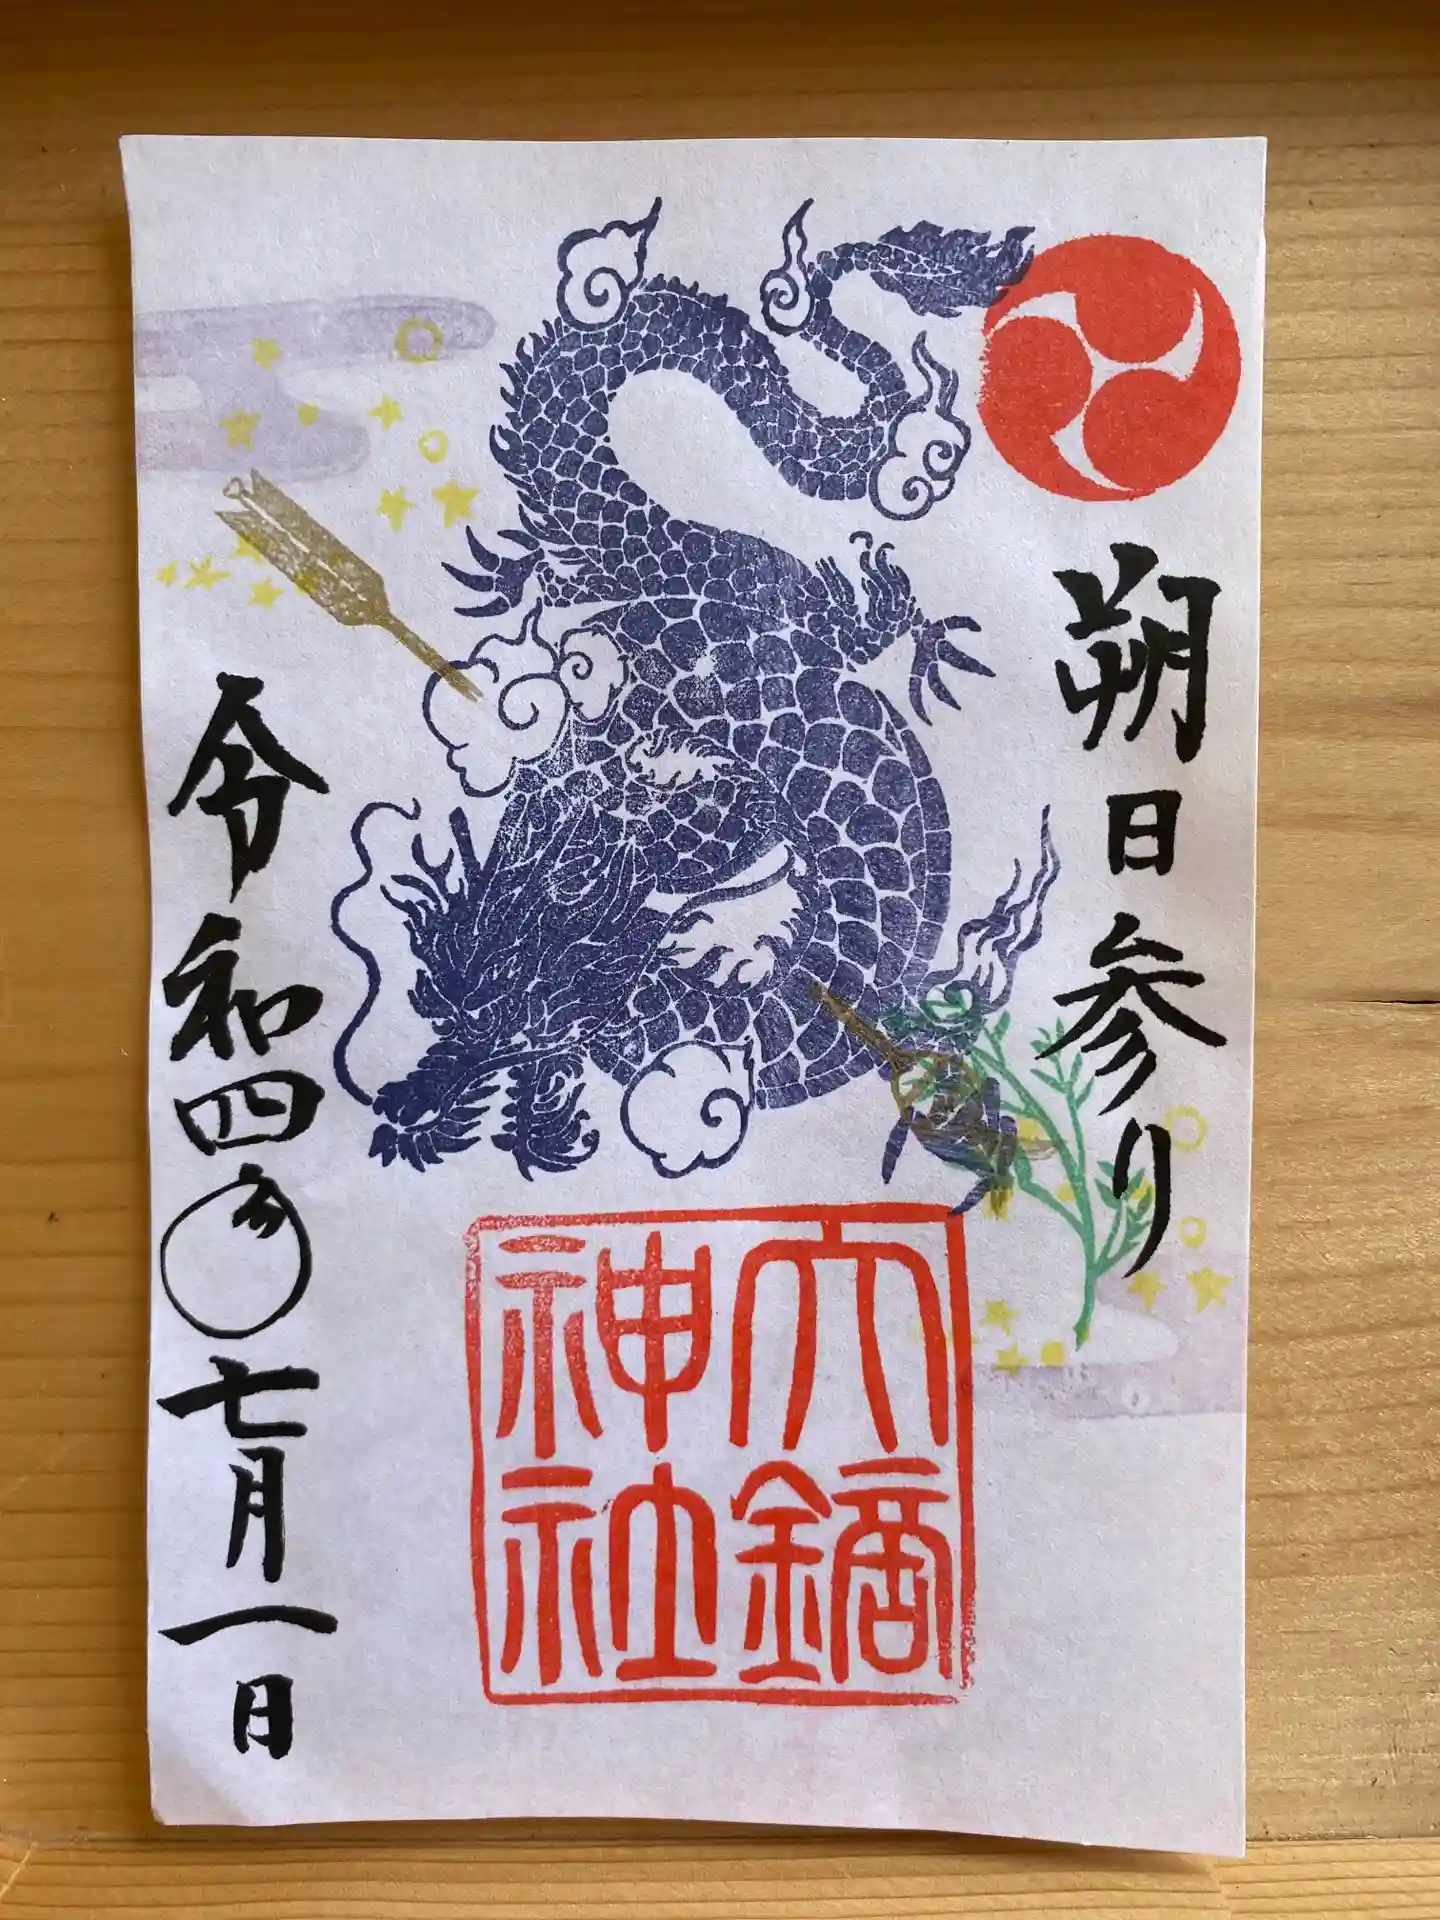 朔日参り
大鏑
神社
令和四年七月一日